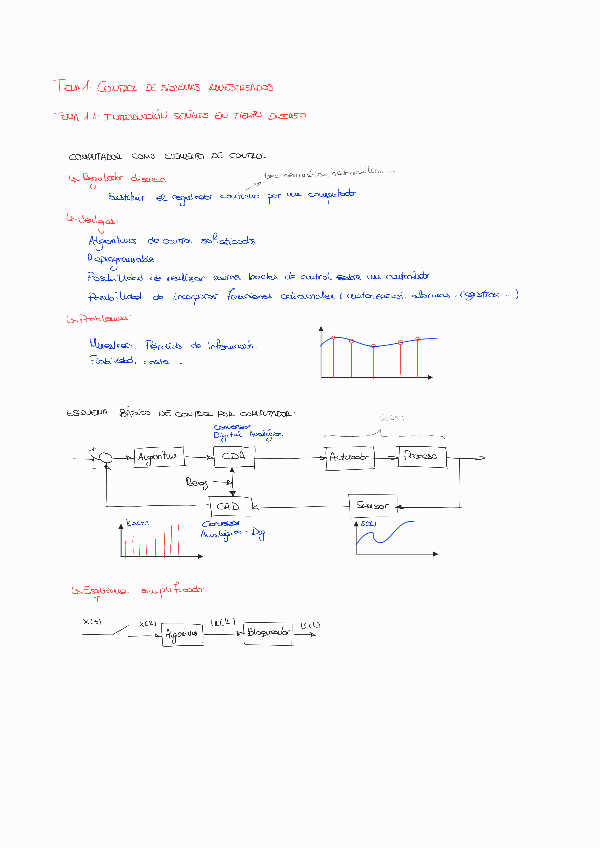 TEMA 1: CONTROL DE SISTEMAS MUESTREADOS
TEMA 1.1: INTRODUCCIÓN SEÑALES EN TIEMPO DISCRETO
COMPUTADOR COMO ELEMENTO DE CONTROL
Regulador discreto
Sustituir el regulador continuo por un computador
Ventajas:
Algoritmos de control sofisticados
Reprogramable
Posibilidad de realizar varios bucles de control sobre un controlador
Posibilidad de incorporar funciones adicionales (monitorización, alarmas, registros...)
Problemas:
Muestreo: Pérdida de información.
Fiabilidad, coste...
ESQUEMA BÁSICO DE CONTROL POR COMPUTADOR:
Conversor
Digital Analógico
+
-
Algoritmo
CDA
Actuador
Proceso
Reloj
CAD
Sensor
Conversor
Analógico - Dig
Esquema simplificado
x(t)
x(k)
Algoritmo
u(k)
Bloqueador
u(t)